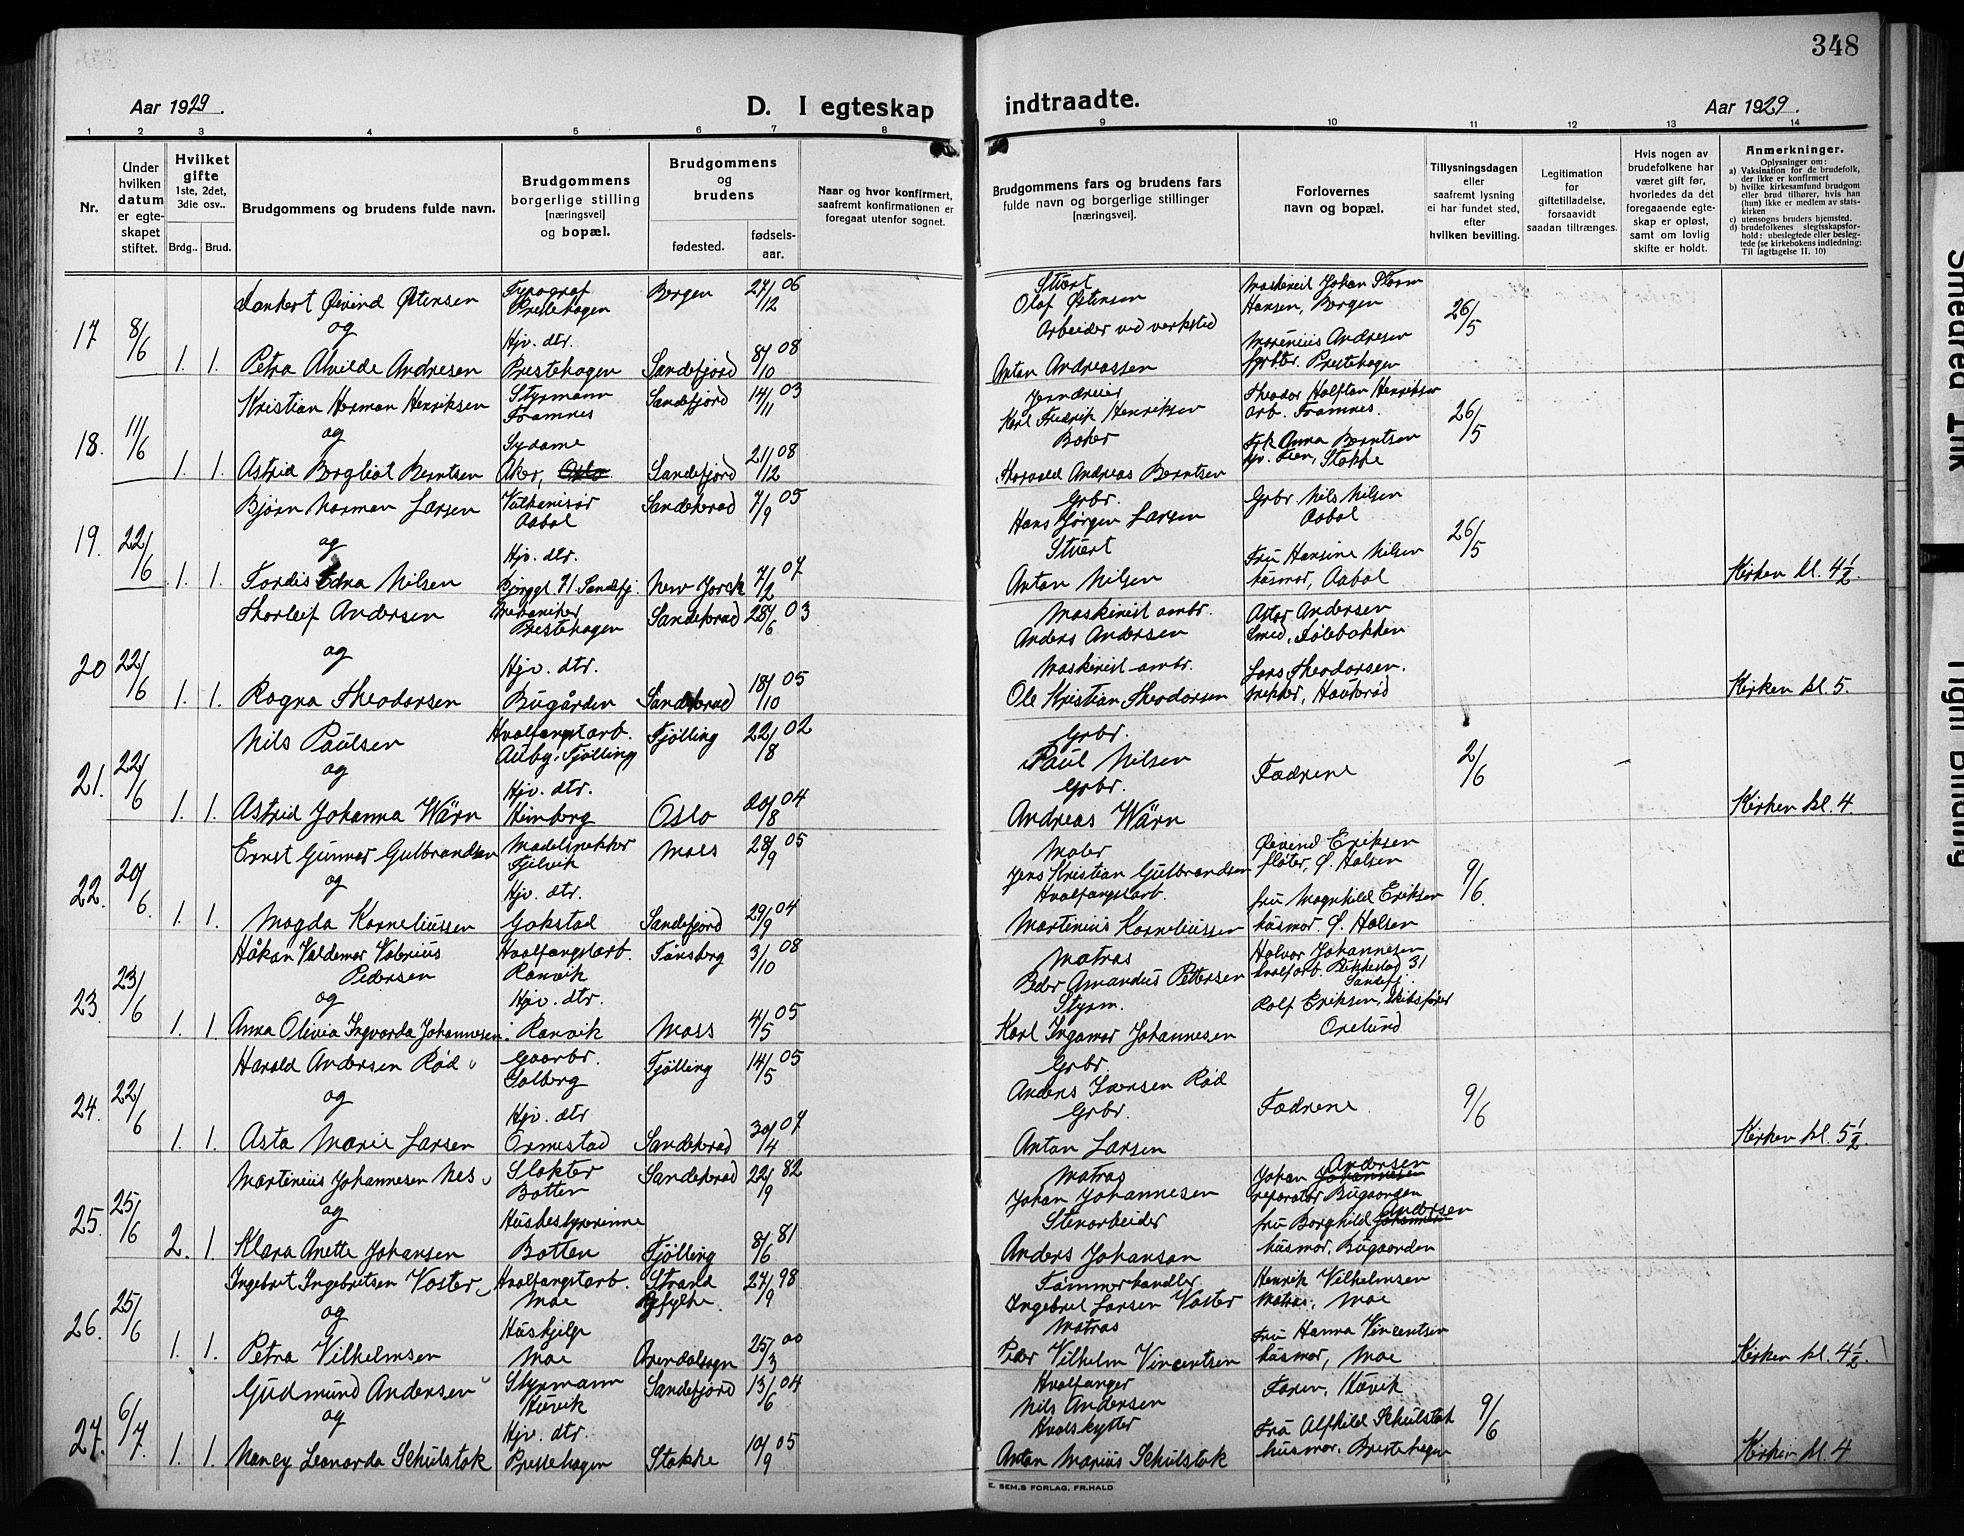 348
Aar 1929.
D. I egteskap
indtraadte.
Aar 1929.
1 2 3 4 5 6 7 8 9 10 11 12 13 14
Nr.
Under hvilken datum er egteskapet stiftet.
Hvilket gifte 1ste, 2det, 3die osv..
Brdg.. Brud.
Brudgommens og brudens fulde navn.
Brudgommens borgerlige stilling [næringsvei] og bopæl.
Brudgommens og brudens
fødested.
fødselsaar.
Naar og hvor konfirmert, saafremt konfirmationen er foregaat utenfor sognet.
Brudgommens fars og brudens fars fulde navn og borgerlige stillinger [næringsvei].
Forlovernes navn og bopæl.
Tillysningsdagen eller saafremt lysning ei har fundet sted, efter hvilken bevilling.
Legitimation for giftetilladelse, forsaavidt saadan tiltrænges.
Hvis nogen av brudefolkene har været gift før, hvorledes da det foregaaende egteskap er opløst, samt om lovlig skifte er holdt.
Anmerkninger.
Oplysninger om:
a) Vaksination for de brudefolk, der ikke er konfirmert
b) hvilke kirkesamfund brudgom eller brud tilhører, hvis han (hun) ikke er medlem av statskirken
c) utensogns bruders hjemsted.
d) brudefolkenes slegtsskapsforhold: ubeslegtede eller beslegtede (se kirkebokens indledning: Til iagttagelse II. 10)
17 8/6 1. 1.
Lankert Øivind Østensen
og
Petra Alvilde Andresen
Typograf
Prestehagen
Hjv. dtr.
Prestehagen
Bergen 27/12 06
Sandefjord 8/10 08
Stuert
Olaf Østensen
Arbeider ved verksted
Anton Andreassen
Maskinist Johan Storm
Hansen, Bergen
Marenius Andresen
Prestehagen
26/5
18. 11/6 1. 1.
Kristian Herman Henriksen
og
Astrid Bergliot Berntsen
Styrmann
Framnes
Sydame
Aker, Oslo
Sandefjord 14/11 03
Sandefjord 21/12 08
Karl Fredrik Henriksen
Baker
Thorvald Andreas Berntsen
Theodor Halftan Henriksen
arb. Framnes.
Frk Anna Berntsen
Stokke
26/5
19. 22/6 1. 1.
Bjørn Norman Larsen
og
Tordis Edna Nilsen
Vulkanisør
Aabol
Hjv. dtr.
Bjerggt 71. Sandefj.
Sandeherad 7/9 05
New Jorck 7/2 07
Grbr.
Hans Jørgen Larsen
Stuert
Anton Nilsen
Grbr Nils Nilsen
Aabol
Fru Hansine Nilsen
husmor, Aabol
26/5
Kirken kl. 4½.
20 22/6 1. 1.
Thorleif Andersen
og
Ragna Theodorsen
Mekaniker
Prestehagen
Hjv. dtr.
Bugården
Sandeherad 28/6 03
Sandeherad 18/10 05
Maskinist ambr.
Anders Andersen
Maskinist ambr.
Ole Kristian Theodorsen
Astor Andersen
Smed, Følebakken
Lars Theodorsen.
snekker, Haukerød
Kirken kl. 5.
21. 22/6 1. 1.
Nils Paulsen
og
Astrid Johanna Wärn
Hvalfangstarb.
Auby, Tjølling
Hjv. dtr.
Himberg
Tjølling 22/8 02
Oslo 20/8 04
Grbr.
Paul Nilsen
Grbr.
Andreas Wärn
Fædrene
2/6
Kirken kl. 4.
22. 20/6. 1. 1.
Ernst Gunnar Gulbrandsen
og
Magda Korneliussen
Modelsnekker
Fjelvik
Hjv. dtr.
Gokstad
Moss 28/9 05
Sandefjord 29/9 04
Maler
Jens Kristian Gulbrandsen
Hvalfangstarb.
Martinius Korneliussen
Øivind Eriksen
fløter, Ø. Halsen
fru Magnhild Eriksen
husmor. Ø. Halsen
9/6.
23. 23/6 1. 1.
Håkan Valdemar Valerius
Pedersen
og
Anna Olivia Ingvarda Johannesen.
Hvalfangstarb.
Ranvik
Hjv. dtr.
Ranvik
Tønsberg 3/10 08
Moss 4/5 05
Matros
Peder Amandus Pettersen
Styrm.
Karl Ingemar Johannesen
Halvor Johannesen
hvalfarb. Pekkestad 31
Sandefj.
Rolf Eriksen, skibsfører
Orelund
24. 22/6 1. 1.
Harald Andersen Rød
og
Asta Marie Larsen
Gaarbr.
Solberg
Hjv. dtr
Ormestad
Tjølling 14/5 05
Sandeherad 30/4 07
Grbr.
Anders Iversen Rød
Grbr.
Anton Larsen
Fædrene
9/6
Kirken kl. 5½.
25. 25/6 2. 1.
Martinius Johannesen Nes
og
Klara Anette Johansen
Slakter
Botten
Husbestyrerinne
Botten
Sandeherad 22/9 82
Tjølling 8/6 81
Matros
Johan Johannesen
Stenarbeider
Anders Johansen
Andersen
Johan Johannesen
reparatør Bugaarden
Andersen
fru Borghild Johannesen
husmor, Bugaarden
26. 25/6 1. 1.
Ingebret Ingebretsen Voster
og
Petra Vilhelmsen
Hvalfangstarb.
Moe
Hushjelp
Moe
Strand
Ryfylke. 27/9 98
Arendalsogn 25/3 00
Tømmerhandler
Ingebret Larsen Voster
Matros
Peder Vilhelm Vincentsen
Henrik Vilhelmsen
Matros, Moe
Fru Hanna Vincentsen
husmor, Moe
Kirken kl. 4½.
27. 6/7. 1. 1.
Gudmund Andersen
og
Nancy Leonarda Schulstok
Styrmann
Huvik
Hjv. dtr.
Prestehagen
Sandefjord 13/6 04
Stokke 10/9 05
Hvalfanger
Nils Andersen
Hvalskytter
Anton Marius Schulstok
Faren, Huvik
Fru Alfhild Schulstok
husmor, Prestehagen
9/6
Kirken kl. 4
E. SEM.S FORLAG, FR.HALD
Smeared Ink
Tight Binding